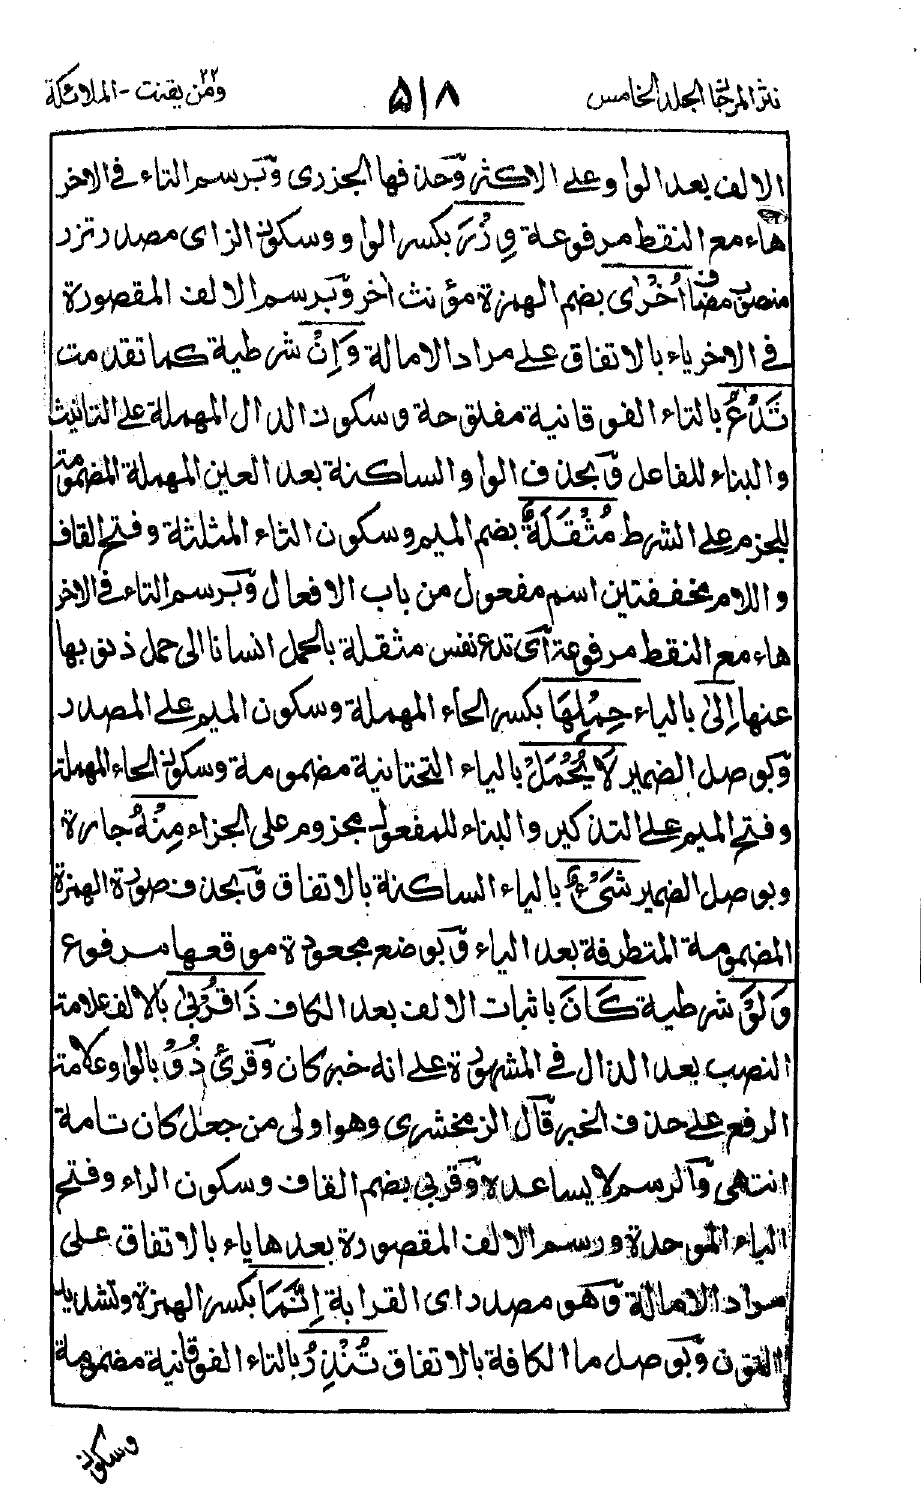 نثر المرجان الجلد الخامس ۵۱۸ ومن يقنت ٢٢ - الملائكة
الالف بعد الواو على الاكثر وَحذفها الجزرى وَبرسم التاء فى الاخر
هاء مع النقط مرفوعة وِزْرَ بكسر الواو وسكون الزاى مصدر تزر
منصوب مضاف اُخْرٰى بضم الهمزة مؤنث اخر وَبرسم الالف المقصورة
فى الاخرياء بالاتفاق على مراد الامالة وَاِنْ شرطية كما تقدمت
تَدْعُ بالتاء الفوقانية مفتوحة وسكون الدال المهملة على التانيث
والبناء للفاعل وَبحذف الواو الساكنة بعد العين المهملة المضمومة
للجزم على الشرط مُثْقَلَةٌ بضم الميم وسكون الثاء المثلثة وفتح القاف
واللام مخففتين اسم مفعول من باب الافعال وَبرسم التاء فى الاخر
هاء مع النقط مرفوعة اَى تدع نفس مثقلة بالحمل انسانا الى حمل ذنوبها
عنها اِلٰى بالياء حِمْلِهَا بكسر الحاء المهملة وسكون الميم على المصدر
وَبوصل الضمير لَا يُحْمَلْ بالياء التحتانية مضمومة وسكون الحاء المهملة
وفتح الميم على التذكير والبناء للمفعول مجزوم على الجزاء مِنْهُ جارة
وبوصل الضمير شَىْءٌ بالياء الساكنة بالاتفاق وَبحذف صورة الهمزة
المضمومة المتطرفة بعد الياء وَبوضع مجعودة موقعها مرفوع
وَلَوْ شرطية كَانَ باثبات الالف بعد الكاف ذَا قُرْبٰى بالالف علامة
النصب بعد الذال فى المشهورة على انه خبر كان وَقرئ ذُوْ بالواو علامة
الرفع على حذف الخبر قال الزمخشرى وهو اولى من جعل كان تامة
انتهى وَالرسم لا يساعده وَقربى بضم القاف وسكون الراء وفتح
الباء الموحدة ورسم الالف المقصورة بعدها ياء بالاتفاق على
مراد الامالة وَهو مصدر اى القرابة اِنَّمَا بكسر الهمزة وتشديد
النون وَبوصل ما الكافة بالاتفاق تُنْذِرُ بالتاء الفوقانية مضمومة
وسكون